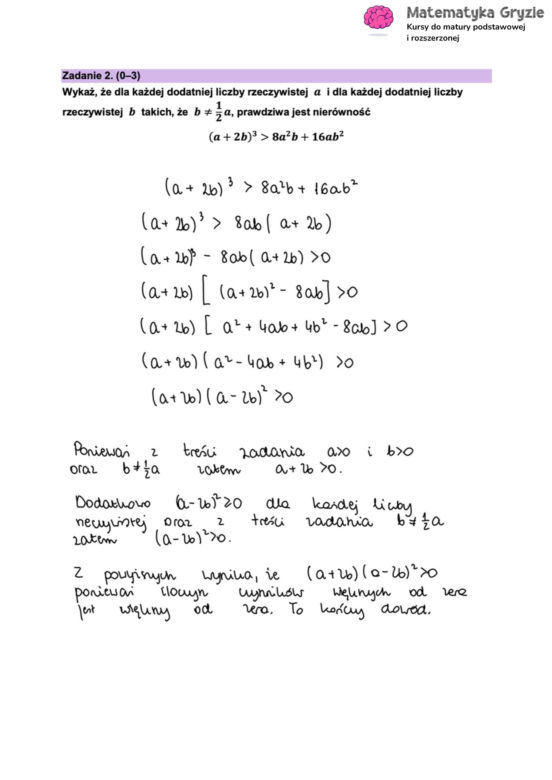 Matematyka Gryzie
Kursy do matury podstawowej
i rozszerzonej
Zadanie 2. (0–3)
Wykaż, że dla każdej dodatniej liczby rzeczywistej a i dla każdej dodatniej liczby
rzeczywistej b takich, że b ≠ 1/2 a, prawdziwa jest nierówność
(a + 2b)³ > 8a²b + 16ab²
(a + 2b)³ > 8a²b + 16ab²
(a + 2b)³ > 8ab( a + 2b)
(a + 2b)³ - 8ab( a + 2b) >0
(a + 2b) [ (a + 2b)² - 8ab] >0
(a + 2b) [ a² + 4ab + 4b² - 8ab] > 0
(a + 2b) ( a² - 4ab + 4b²) >0
(a + 2b) ( a - 2b)² >0
Ponieważ z treści zadania a>0 i b>0
oraz b≠1/2a zatem a + 2b >0.
Dodatkowo (a-2b)²≥0 dla każdej liczby
rzeczywistej oraz z treści zadania b≠1/2a
zatem (a-2b)²>0.
Z powyższych wynika, że (a+2b)(a-2b)²>0
ponieważ iloczyn wyników większych od zera
jest większy od zera. To kończy dowód.